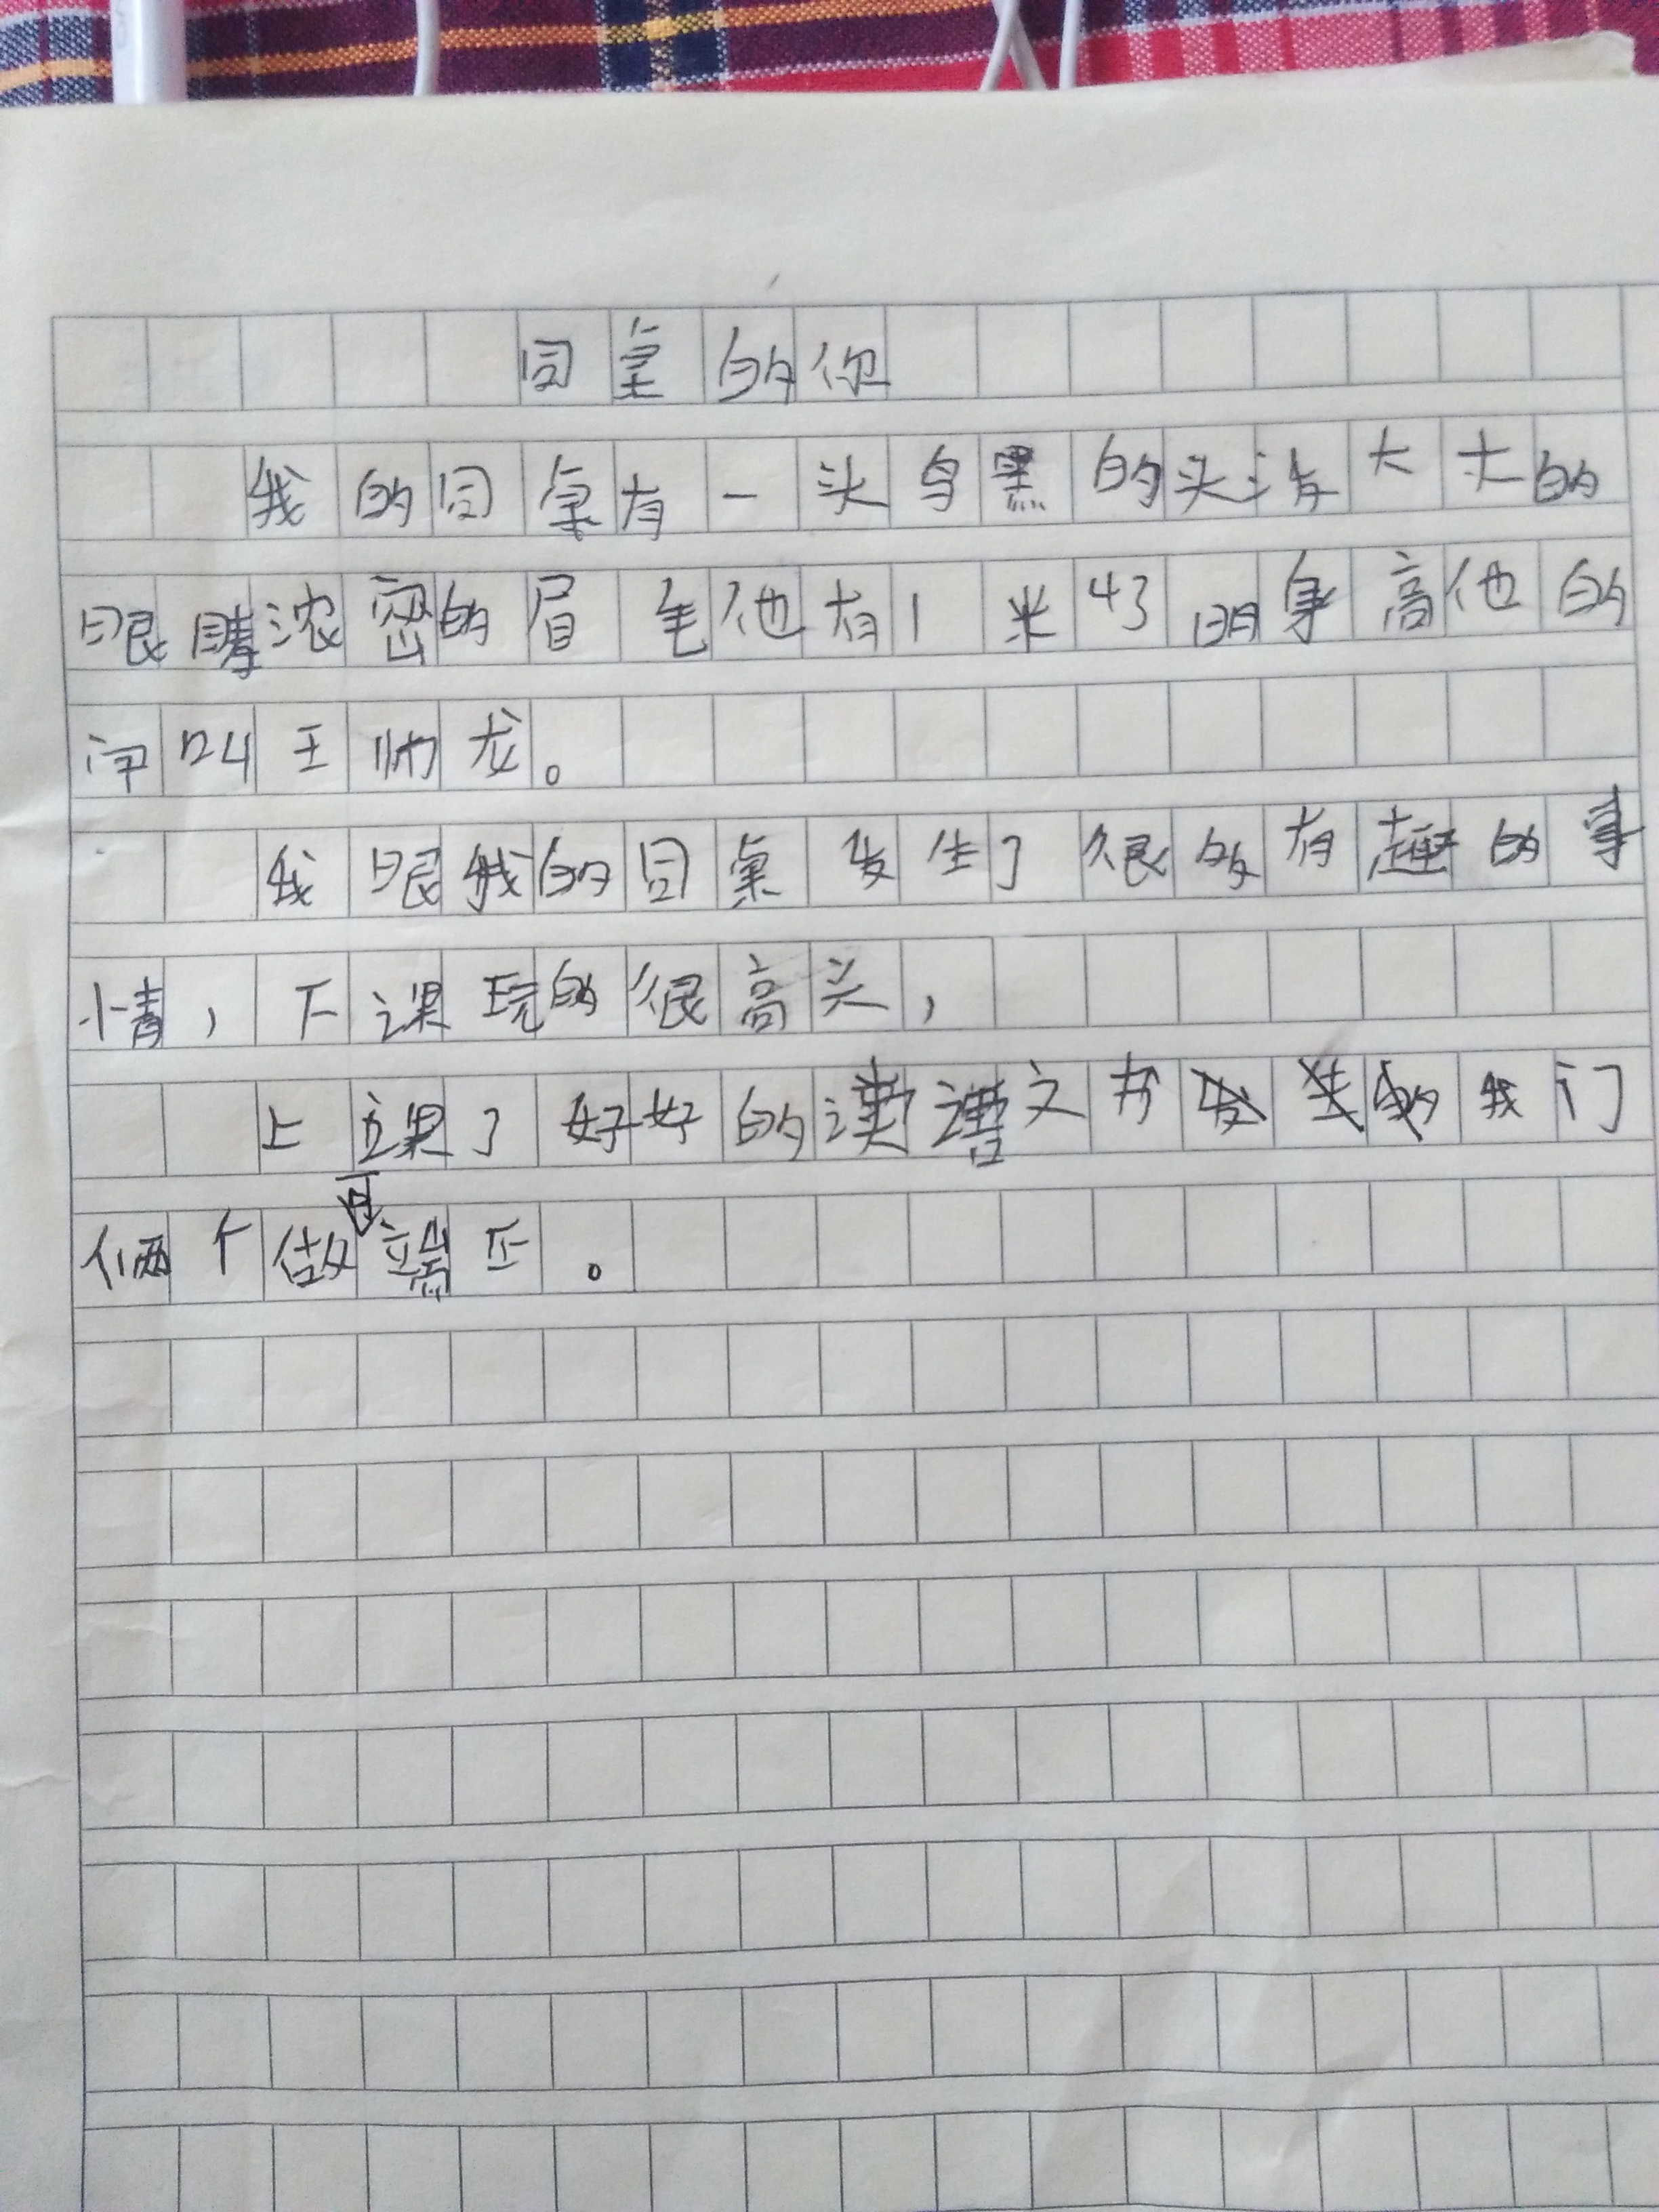 同桌的你
我的同桌有一头乌黑的头发大大的
眼睛浓密的眉毛他有1米43 身高他的
叫王帅龙。
我跟我的同桌发生了很多有趣的事
情，下课玩的很高兴，
上课了好好的读语文书我门
俩个做端正。